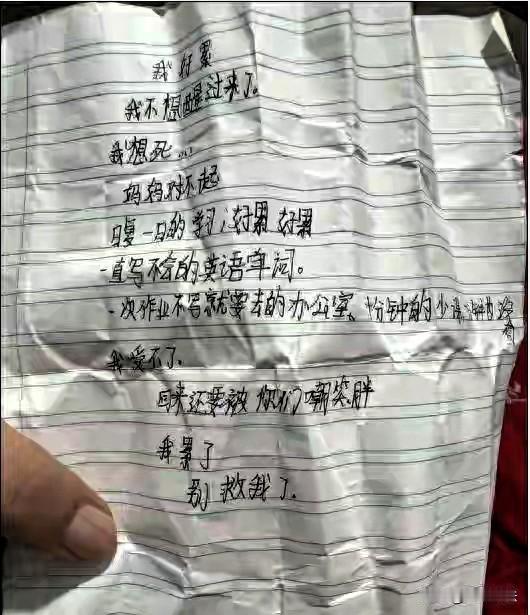 我好累
我不想醒过来了。
我想死...
妈妈对不起
日复一日的学习好累 好累
一直写不会的英语单词。
一次作业不写就要去的办公室、分钟的少
我受不了.
回来还要被 你们嘲笑胖
我累了
别救我了.